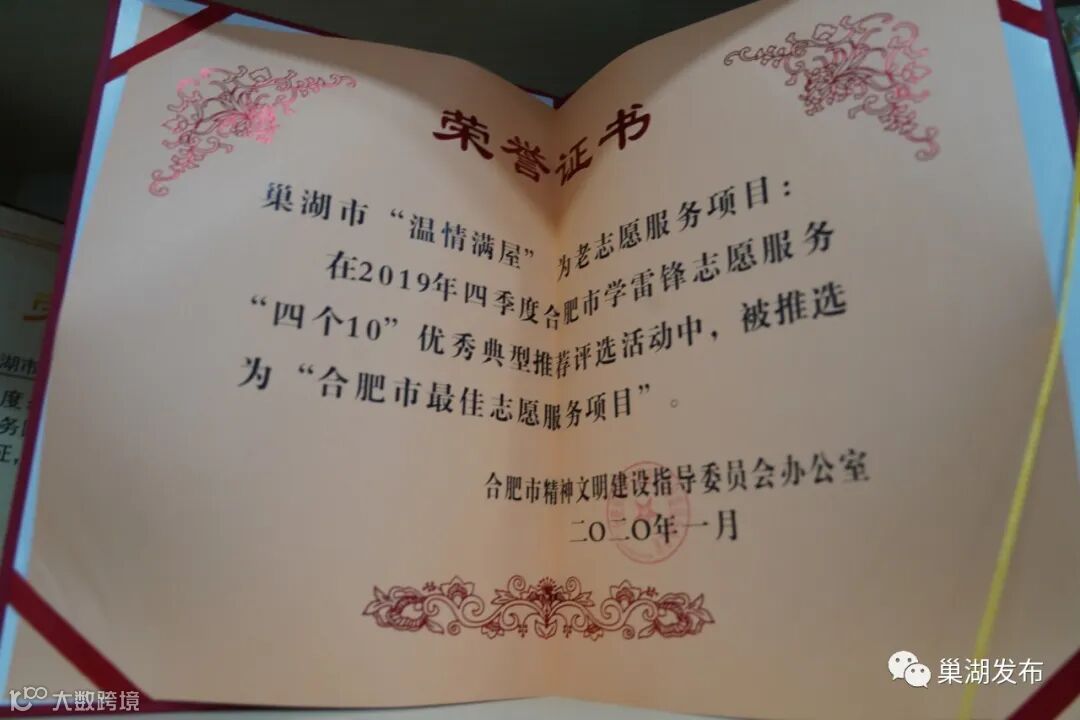 荣誉证书
巢湖市“温情满屋”为老志愿服务项目：
在2019年四季度合肥市学雷锋志愿服务
“四个10”优秀典型推荐评选活动中，被推选
为“合肥市最佳志愿服务项目”。
合肥市精神文明建设指导委员会办公室
二〇二〇年一月
湖市
度
务
证，
巢湖发布
大数跨境